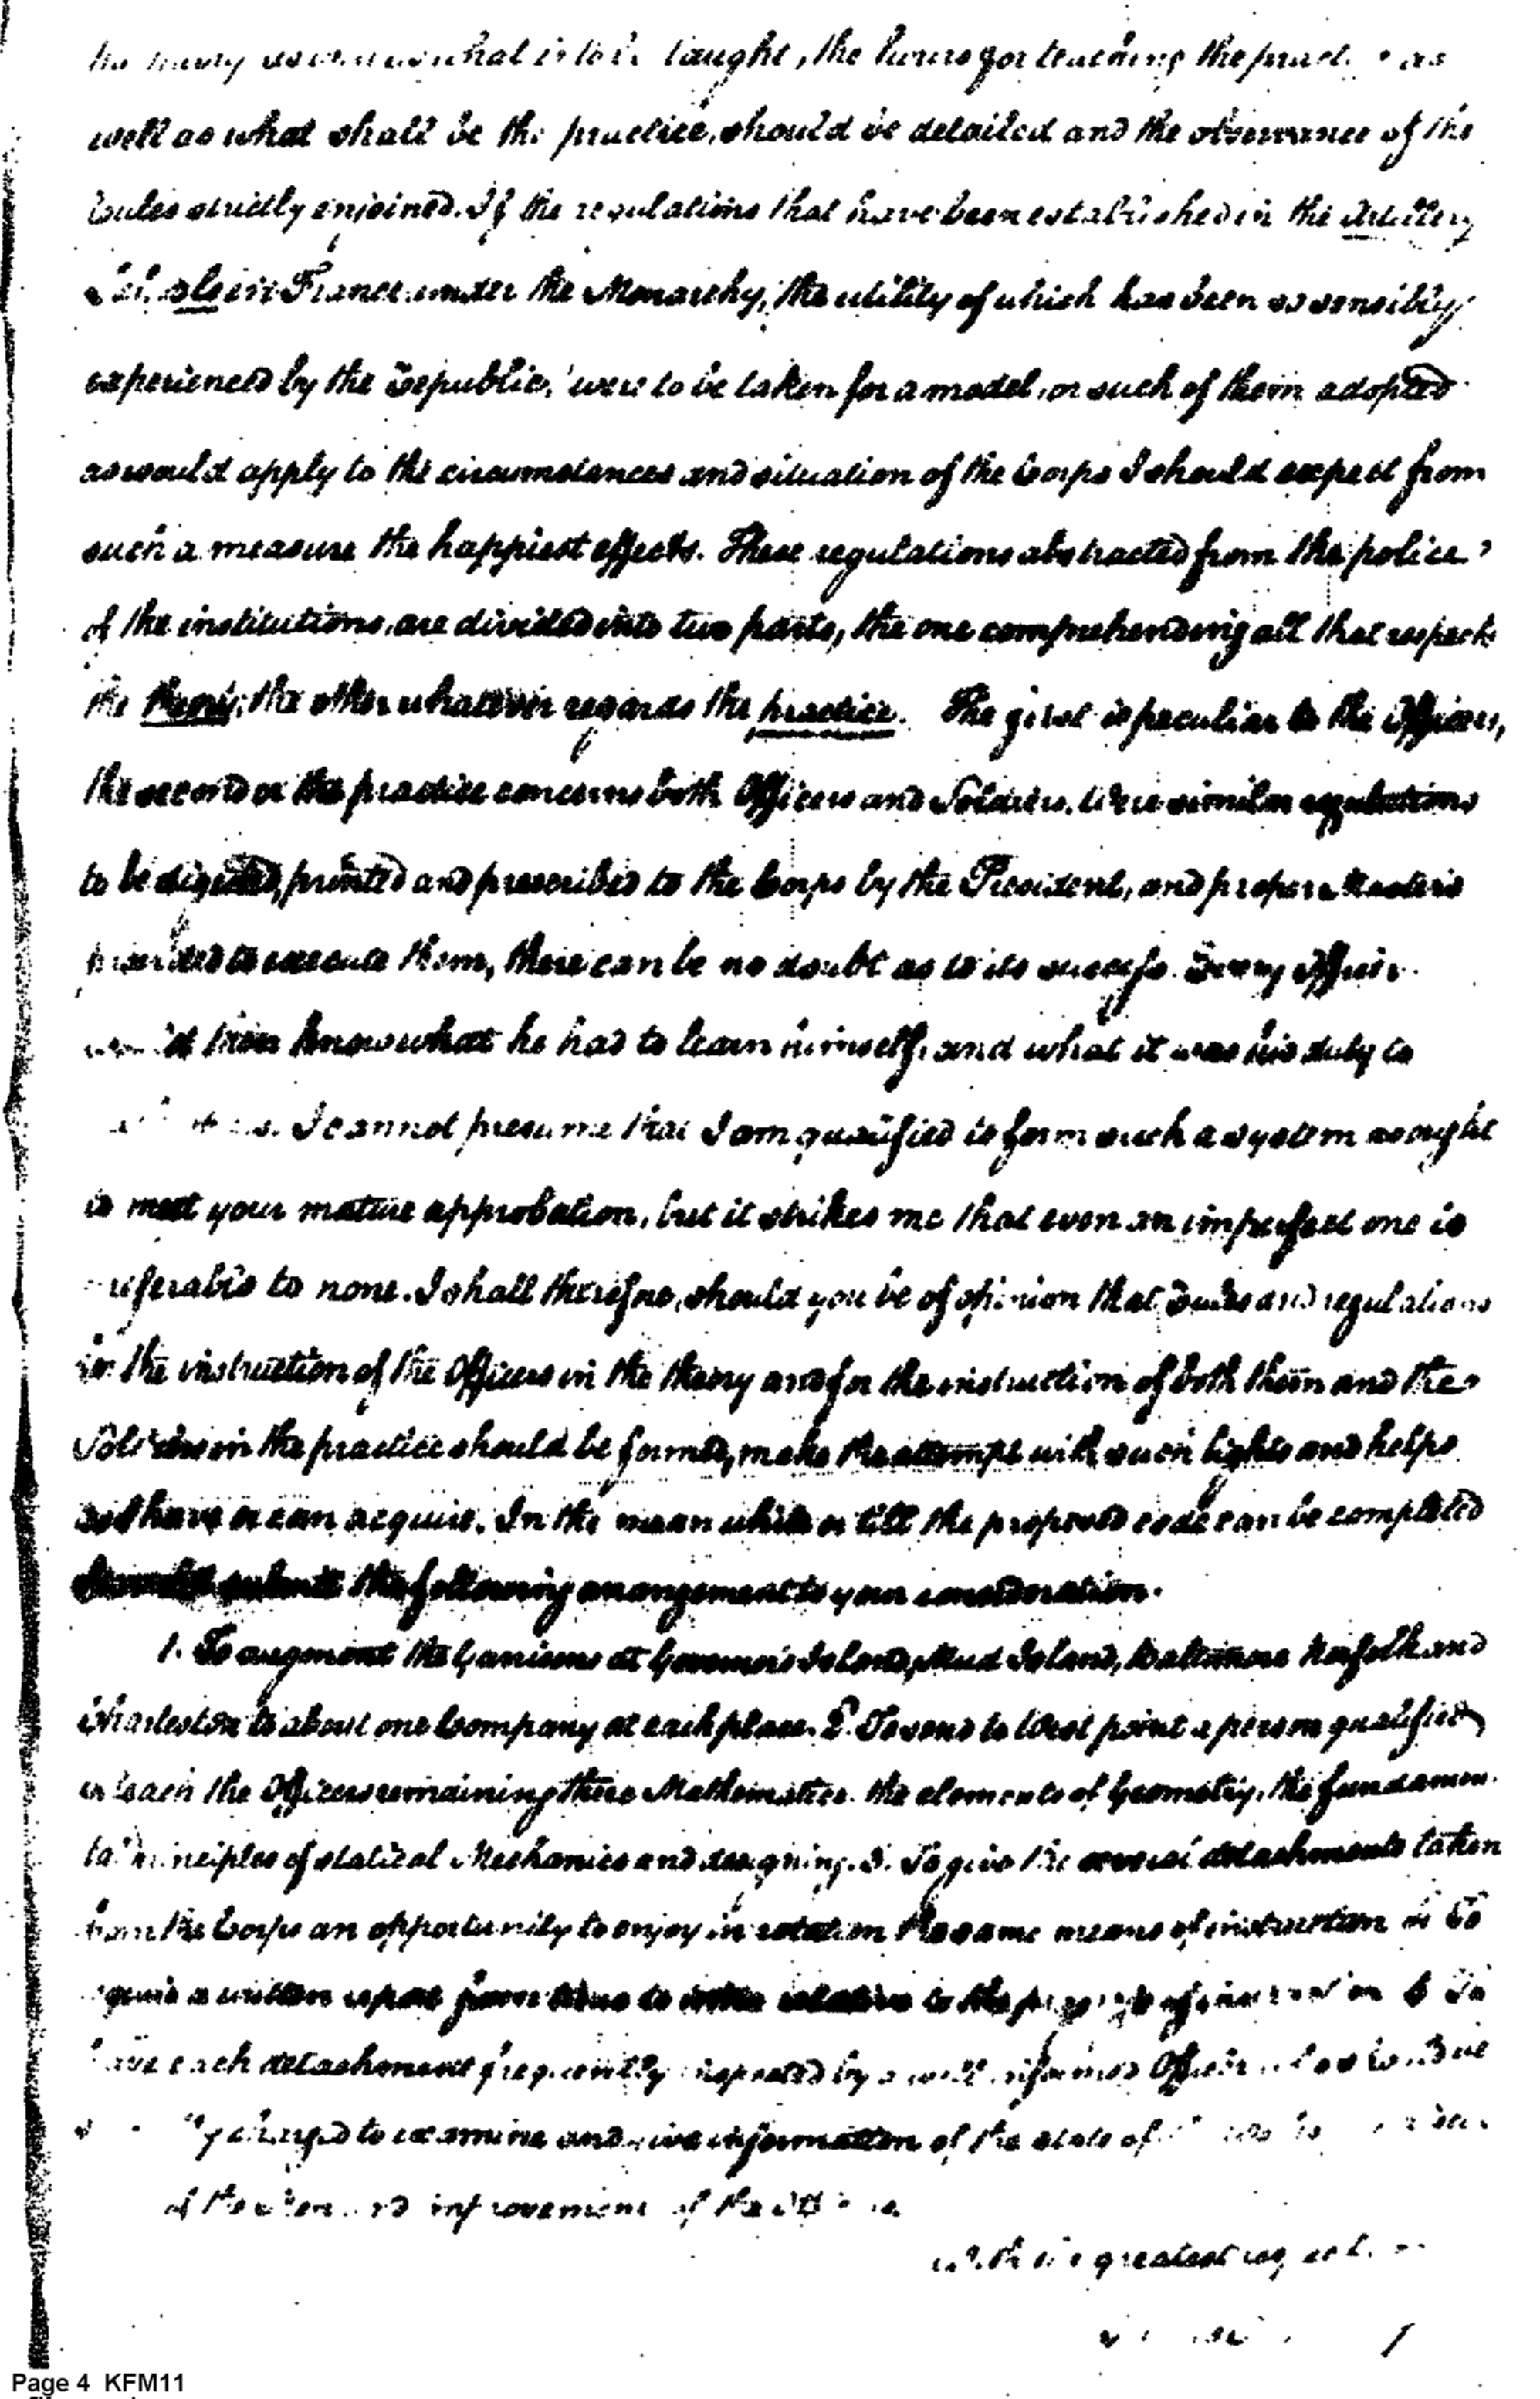 what is to be taught, the hours for teaching the
well as what shall be the practice, should be detailed and the observance of the
rules strictly enjoined. If the regulations that have been established in the Artillery
Schools in France under the Monarchy, the utility of which has been so sensibly
experienced by the Republic, were to be taken for a model, or such of them adopted
as would apply to the circumstances and situation of the Corps I should expect from
such a measure the happiest effects. These regulations abstracted from the police
of the institutions, are divided into two parts, the one comprehending all that respects
the theory; the other whatever regards the practice. The first is peculiar to the Officers,
the second or the practice concerns both Officers and Soldiers. Were similar regulations
to be digested, printed and prescribed to the Corps by the President, and proper Masters
provided to execute them, there can be no doubt as to its success. Every Officer
would then know what he had to learn himself, and what it was his duty to
I cannot presume that I am qualified to form such a system as ought
to meet your mature approbation, but it strikes me that even an imperfect one is
preferable to none. I shall therefore, should you be of opinion that Rules and regulations
for the instruction of the Officers in the theory and for the instruction of both them and the
Soldiers in the practice should be formed, make the attempt with such lights and helps
as I have or can acquire. In the mean while or till the proposed code can be completed
I would submit the following arrangement to your consideration.
1. To augment the Garrisons at Governor's Island, Mud Island, Baltimore Norfolk and
Charleston to about one Company at each place. 2. To send to West point a person qualified
to teach the Officers remaining there Mathematics, the elements of Geometry, the fundamen
tal principles of statical Mechanics and designing. 3. To give the several detachments taken
from the Corps an opportunity to enjoy in rotation the same means of instruction To
require a written report from time to time relative to the progress of instruction To
have each detachment frequently inspected by a well informed Officer who should be
charged to examine and give information of the state of
of the and improvement of the
with the greatest respect
Page 4 KFM11